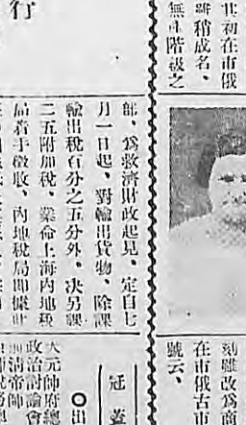 其初在市俄
跡稍成名、
無斗階級之
刻雖改為商
在市俄古市
號云、
行
部、為救濟財政起見、定自七
月一日起、對輸出貨物、除課
輸出稅百分之五分外、決另課
二五附加稅、業命上海內地稅
局着手徵收、內地稅局即據此
冠蓋
〇出
大元帥府總
政治討論會
清帝師